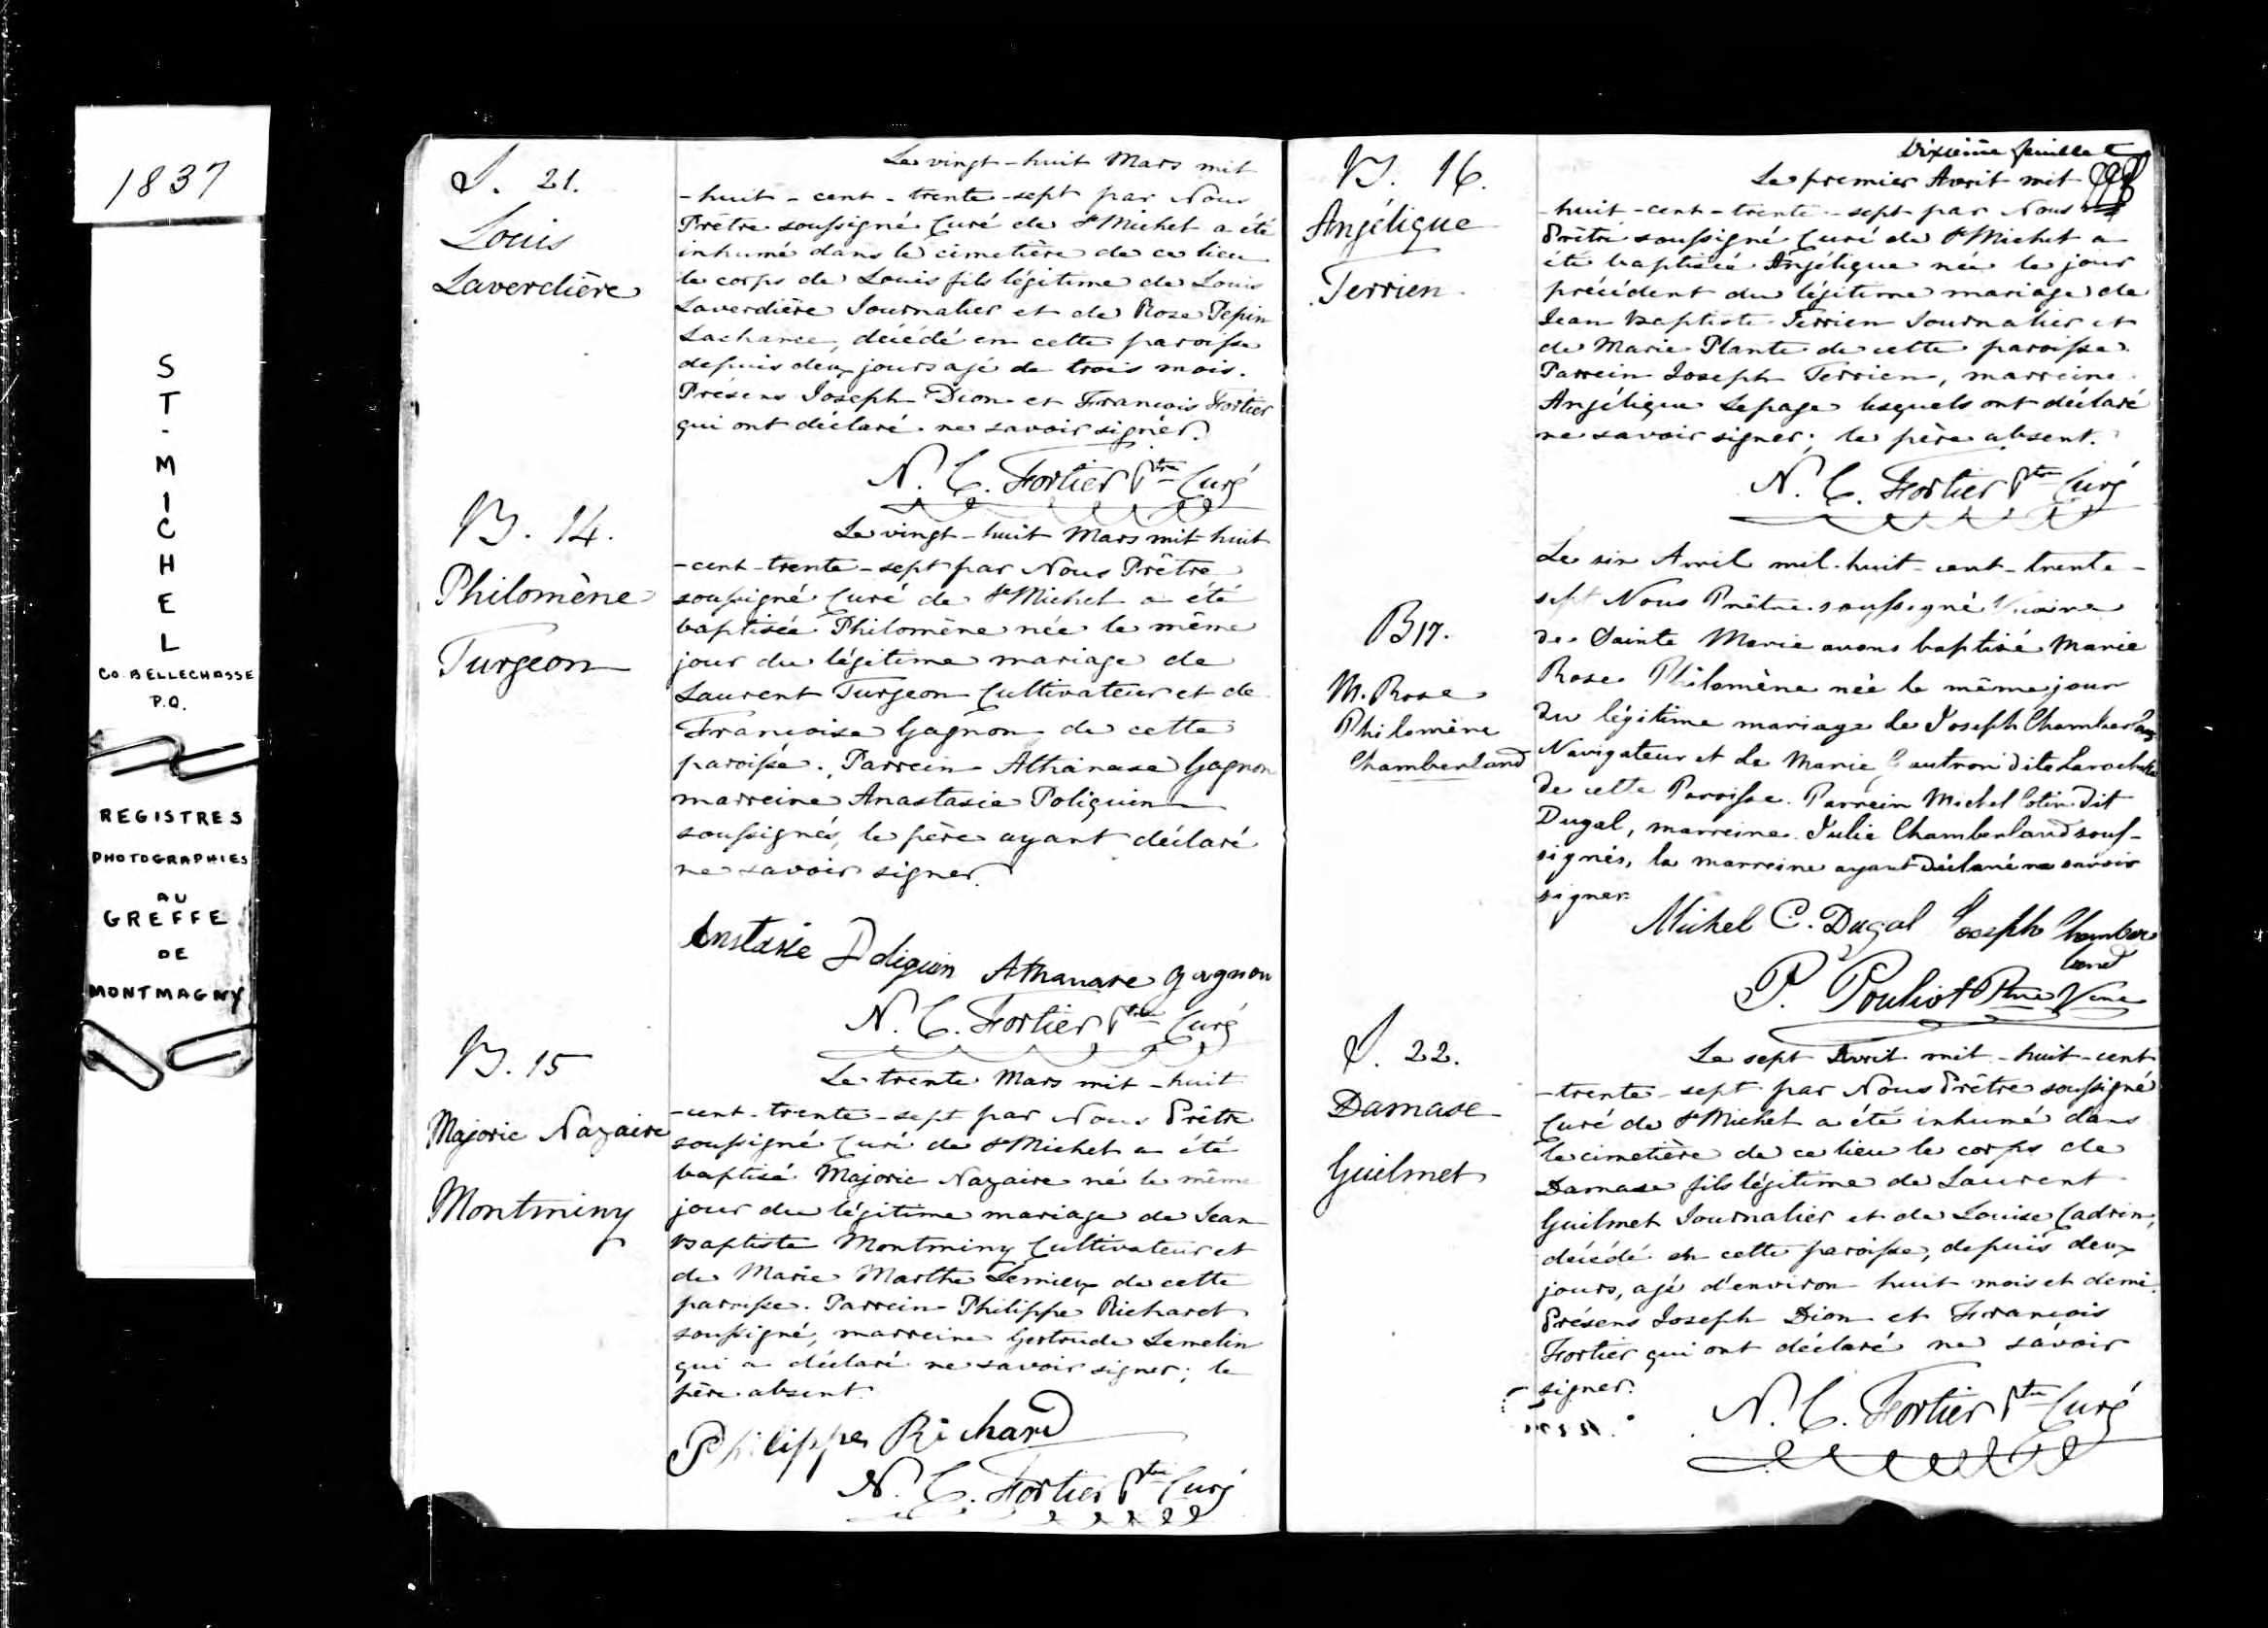 1837
ST-MICHEL
CO. BELLECHASSE
P.Q.
REGISTRES
PHOTOGRAPHIES
AU
GREFFE
DE
MONTMAGNY
S. 21.
Louis
Laverdière
Le vingt-huit Mars mil
-huit-cent-trente-sept par Nous
Prêtre soussigné Curé de St Michel a été
inhumé dans le cimetière de ce lieu
le corps de Louis fils légitime de Louis
Laverdière Journalier et de Rose Pepin
Lachance, décédé en cette paroisse
depuis deux jours agé de trois mois.
Présens Joseph Dion et François Fortier
qui ont déclaré ne savoir signer.
N. C. Fortier Ptre Curé
B. 14.
Philomène
Turgeon
Le vingt-huit Mars mil huit
-cent-trente-sept par Nous Prêtre
soussigné Curé de St Michel a été
baptisée Philomène née le même
jour du légitime mariage de
Laurent Turgeon Cultivateur et de
Françoise Gagnon de cette
paroisse. Parrein Athanase Gagnon
marreine Anastasie Poliquin
soussignés, le père ayant déclaré
ne savoir signer.
Anstasie Poliquin Athanase gagnon
N. C. Fortier Ptre Curé
B. 15
Majoric Nazaire
Montminy
Le trente Mars mil-huit
-cent-trente-sept par Nous Prêtre
soussigné Curé de St Michel a été
baptisé Majoric Nazaire né le même
jour du légitime mariage de Jean
Baptiste Montminy Cultivateur et
de Marie Marthe Lemieux de cette
paroisse. Parrein Philippe Richard
soussigné, marreine Gertrude Lemelin
qui a déclaré ne savoir signer; le
père absent.
Philippe Richard
N. C. Fortier Ptre Curé
Dixième feuillet
B. 16.
Angélique
Terrien
Le premier Avril mil
-huit-cent-trente-sept par Nous
Prêtre soussigné Curé de St Michel a
été baptisée Angélique née le jour
précédent du légitime mariage de
Jean Baptiste Terrien Journalier et
de Marie Plante de cette paroisse.
Parrein Joseph Terrien, marreine
Angélique Lepage lesquels ont déclaré
ne savoir signer; le père absent.
N. C. Fortier Ptre Curé
B 17.
M. Rose
Philomène
Chamberland
Le six Avril mil-huit-cent-trente-
sept Nous Prêtre soussigné Vicaire
de Sainte Marie avons baptisé Marie
Rose Philomène née le même jour
du légitime mariage de Joseph Chamberland
Navigateur et de Marie Gautron dite Larochelle
de cette Paroisse. Parrein Michel Cotin dit
Dugal, marreine Julie Chamberland sous-
signés, la marreine ayant déclaré ne savoir
signer.
Michel C. Dugal Joseph Chamber
land
P. Pouliot Ptre Vicre
S. 22.
Damase
Guilmet
Le sept Avril mil-huit-cent
-trente-sept par Nous Prêtre soussigné
Curé de St Michel a été inhumé dans
le cimetière de ce lieu le corps de
Damase fils légitime de Laurent
Guilmet Journalier et de Louise Cadrin,
décédé en cette paroisse, depuis deux
jours, agé d'environ huit mois et demi.
Présens Joseph Dion et François
Fortier qui ont déclaré ne savoir
signer.
N. C. Fortier Ptre Curé